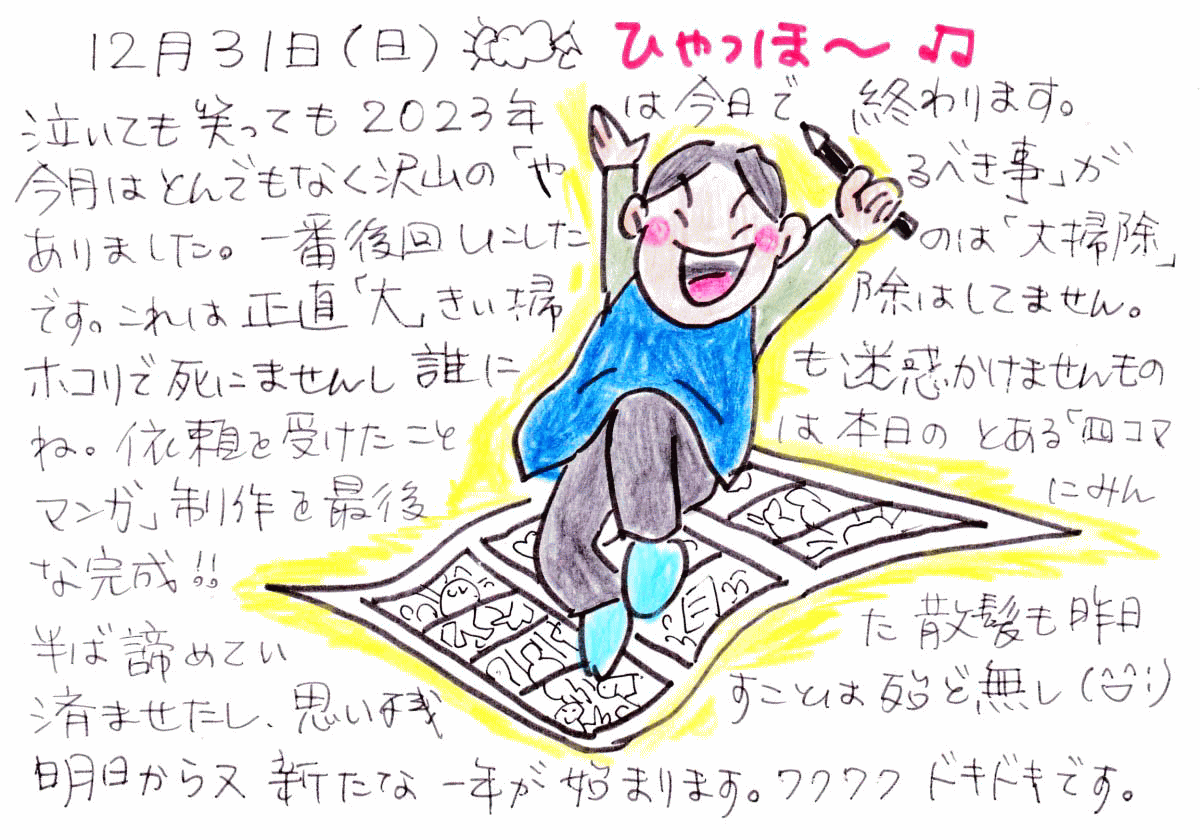 12月31日(日) ひやっほ〜♫
泣いても笑っても2023年は今日で終わります。
今月はとんでもなく沢山の「やるべき事」が
ありました。一番後回しにしたのは「大掃除」
です。これは正直「大」きい掃除はしてません。
ホコリで死にませんし誰にも迷惑かけませんもの
ね。依頼を受けたことは本日のとある「四コマ
マンガ」制作を最後にみん
な完成!!
半ば諦めていた散髪も昨日
済ませたし、思い残すことは殆ど無し(^^!)
明日から又新たな一年が始まります。ワクワクドキドキです。